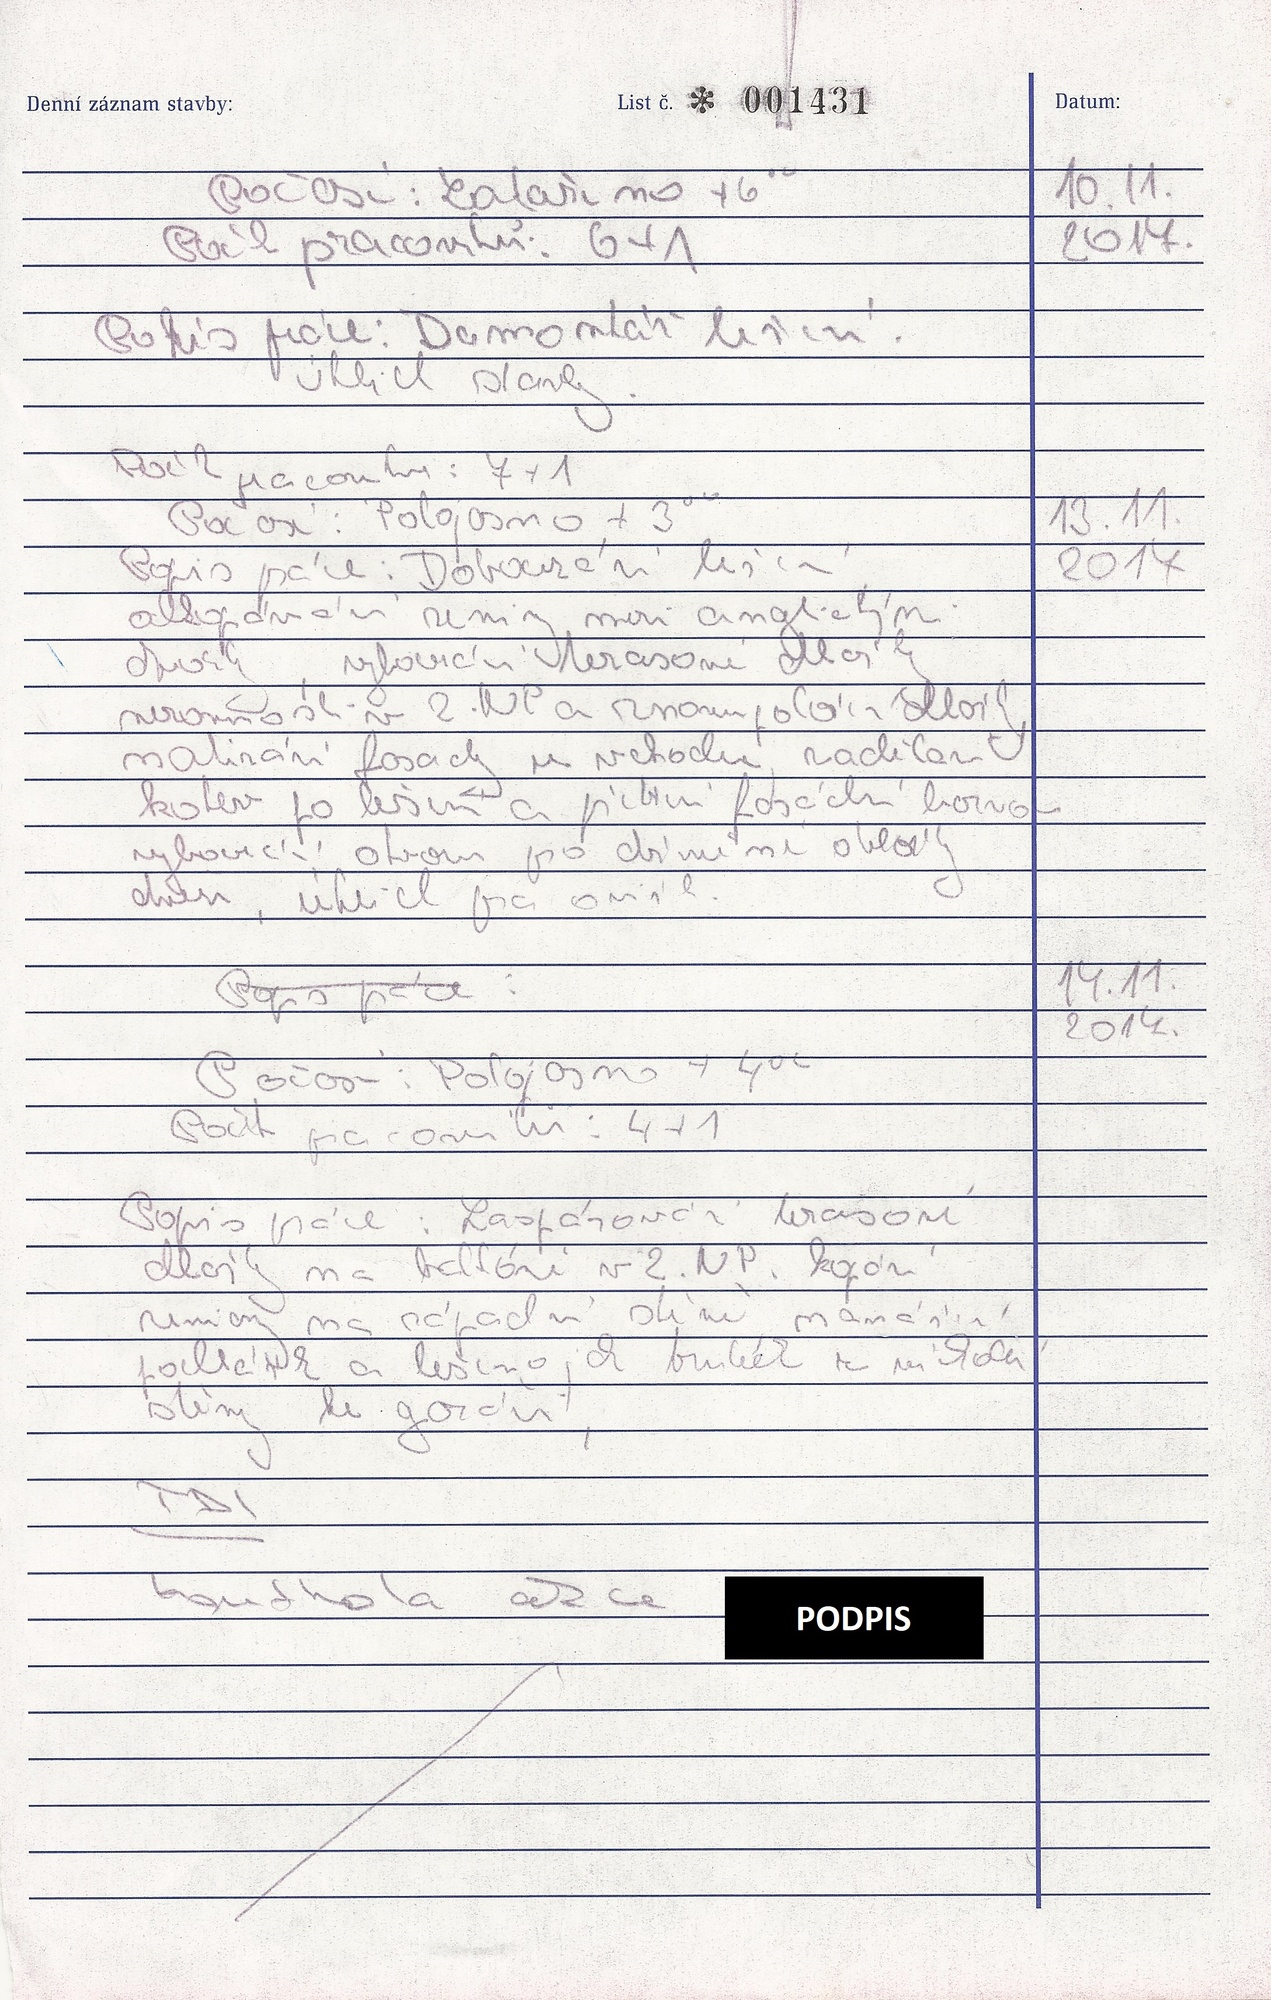 Denní záznam stavby: List č. * 001431 Datum:
Počasí: Zataženo +6°C 10.11.
Počet pracovníků: 6+1 2017.
Popis práce: Demontáž lešení.
Úklid stavby.
Počet pracovníků: 7+1
Počasí: Polojasno + 3°C 13.11.
Popis práce: Dobourání lešení 2017
zeminy mezi anglickými
dvorky, vybourání terasové dlažby
v 2.NP a dlažby
natírání fasády u vchodu, zadělání
kotev po lešení a fasádní barvou
otvoru po dřevěné obklady
dveře, úklid pracoviště.
Popis práce : 14.11.
2017.
Počasí: Polojasno + 4°C
Počet pracovníků: 4+1
Popis práce : Zaspárování terasové
dlažby na balkóně v 2.NP. kopání
zeminy na západní stěně
a u
stěny ke garáži,
TDI
kontrola akce PODPIS